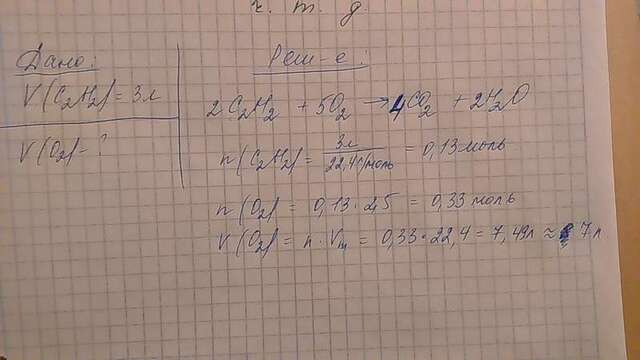 ч. т. д.
Дано:
V(C₂H₂) = 3л
V(O₂) - ?
Реш-е:
2C₂H₂ + 5O₂ → 4CO₂ + 2H₂O
n(C₂H₂) = 3л / 22,4л/моль = 0,13 моль
n(O₂) = 0,13 · 2,5 = 0,33 моль
V(O₂) = n · Vm = 0,33 · 22,4 = 7,49л ≈ 7л